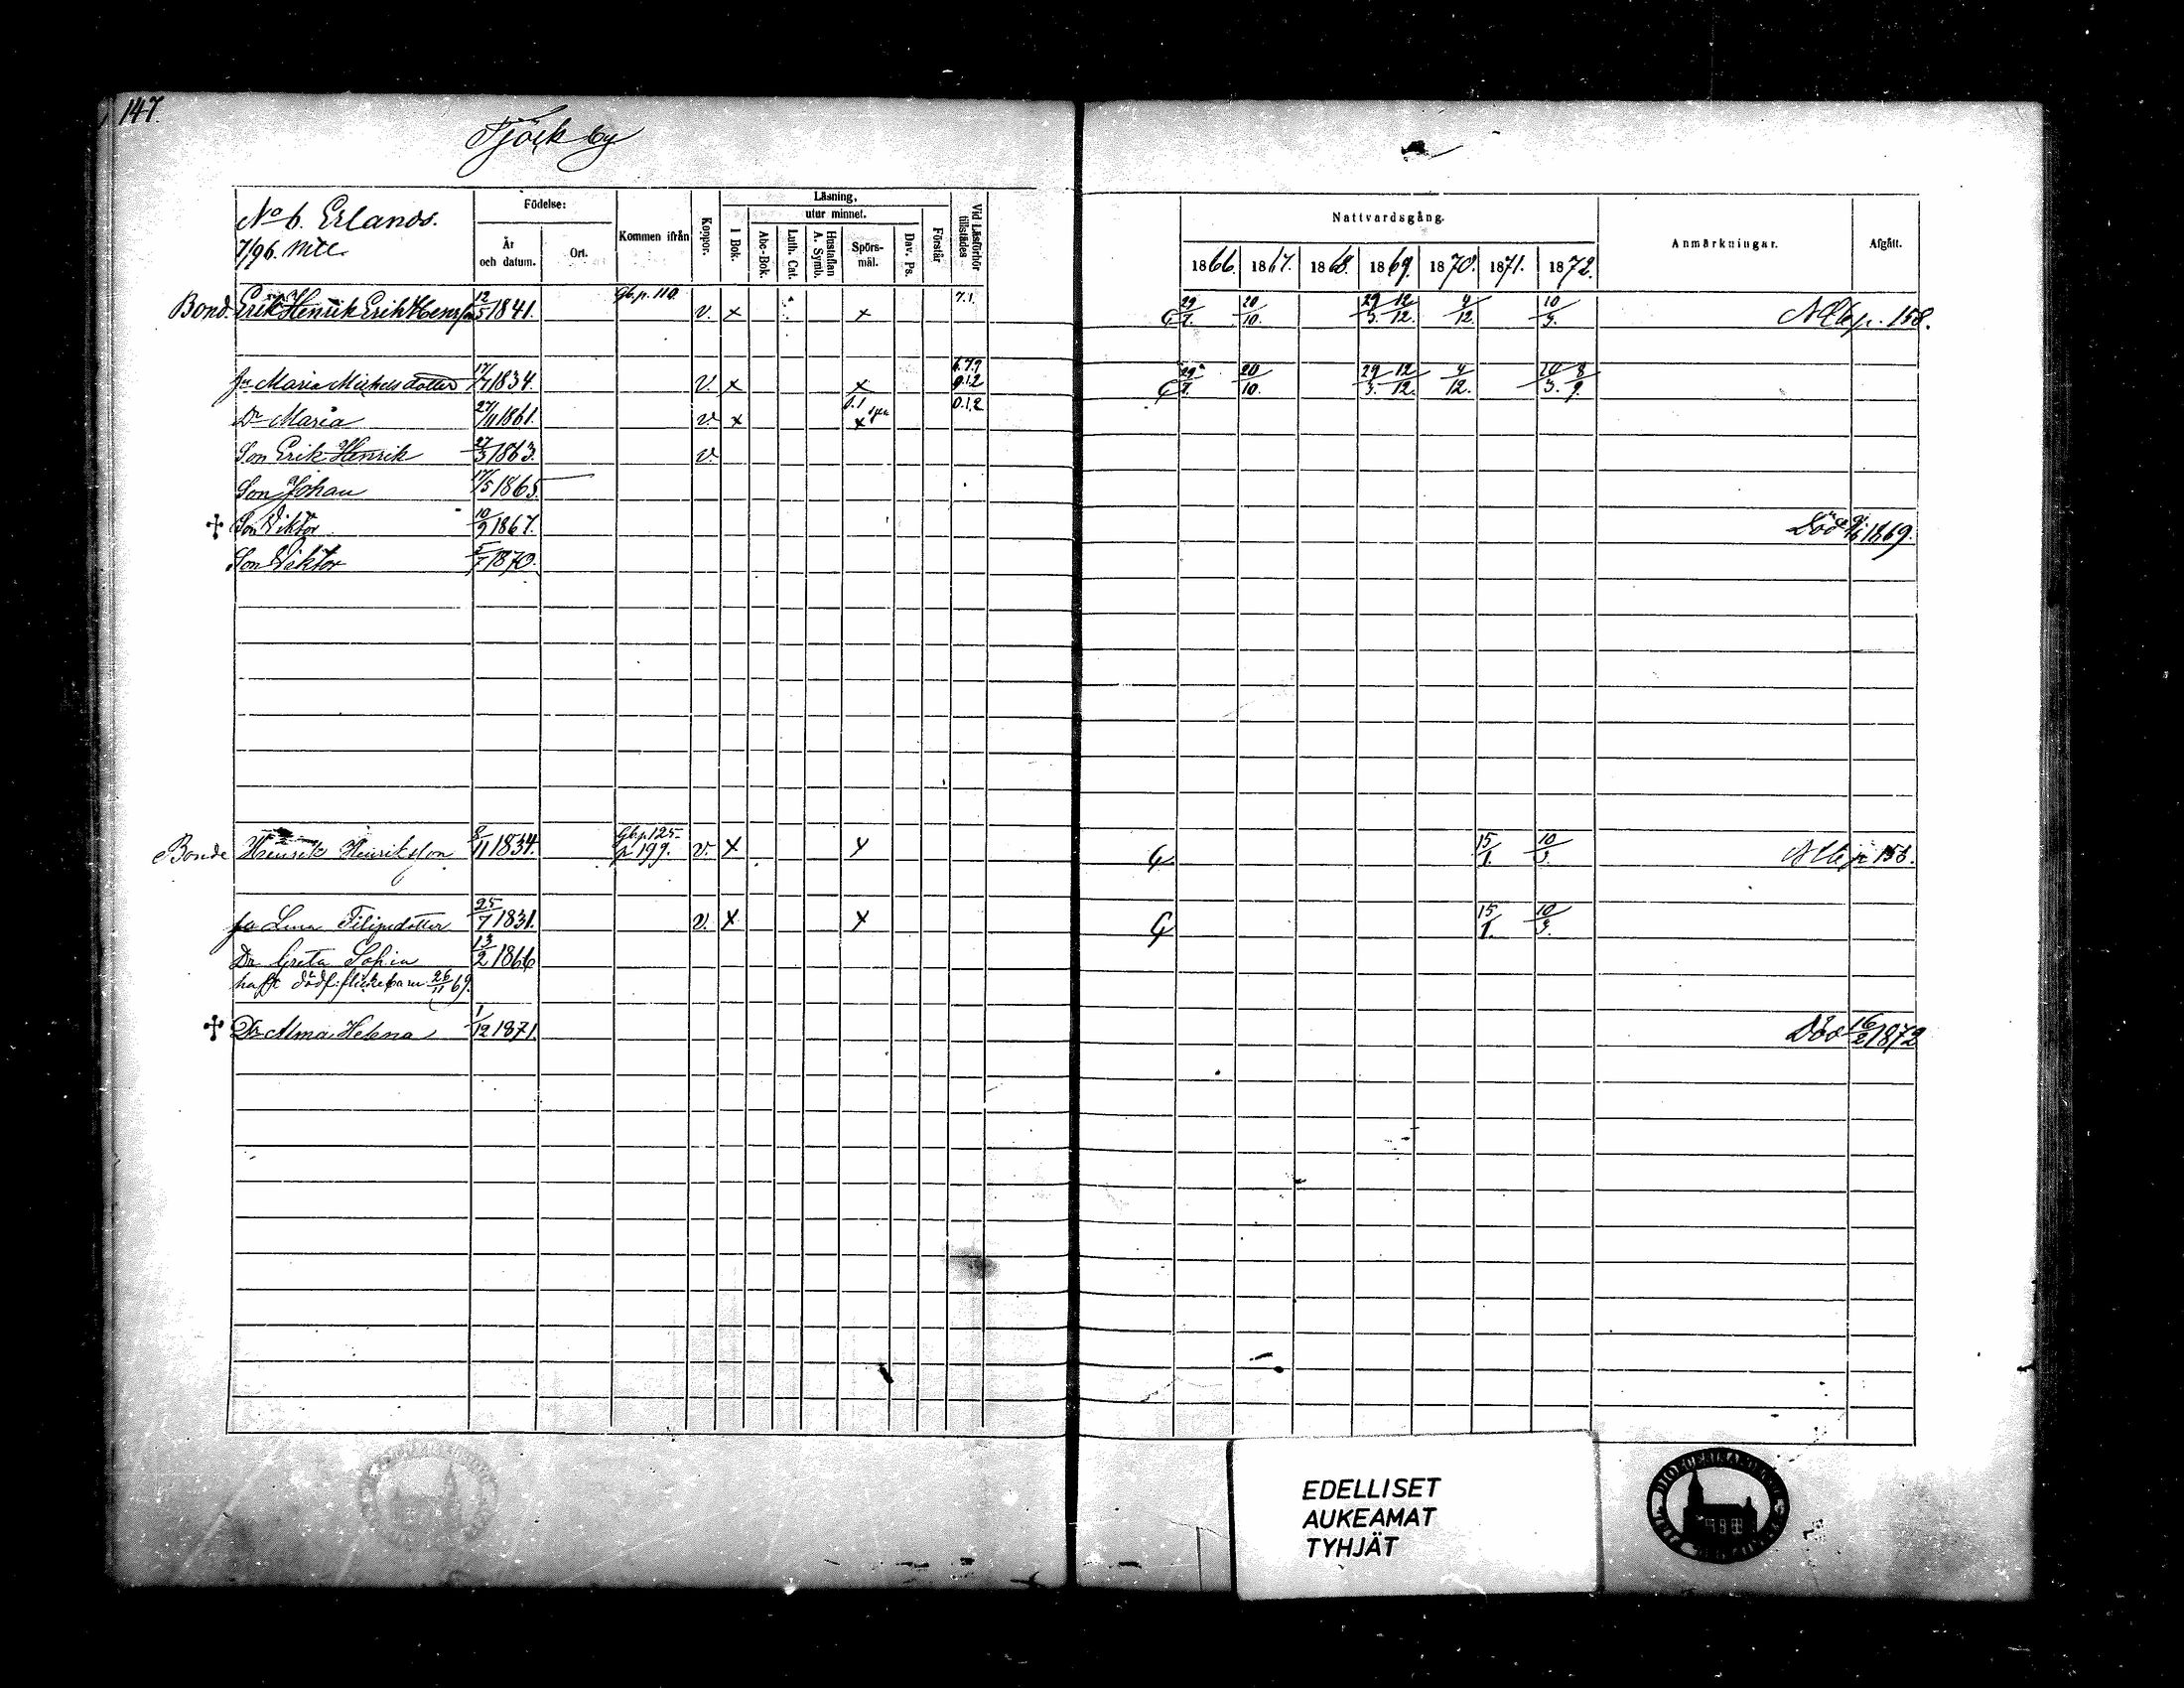 147.
Tjöck by
No 6. Erlands.
7/96. Mtl.
Födelse:
År och datum.
Ort.
Kommen ifrån
Koppor.
Läsning,
I Bok.
utur minnet.
Abc-Bok.
Luth. Cat.
Hustaflan A. Symb.
Spörs-mål.
Dav. Ps.
Förstår
Vid Läsförhör tillstädes
Nattvardsgång.
1866. 1867. 1868. 1869. 1870. 1871. 1872.
Anmärkningar.
Afgått.
Bond. Erik Henrik Erik Henrs son 12/5 1841. Gb. p. 110. v. x x 7.1. 29/7. 20/10. 29/3. 12/12. 4/12. 10/3. p. 158.
hu Maria Mickelsdotter 17/7 1834. v. x x 6.7.9 0.1.2 29/7. 20/10. 29/3. 12/12. 4/12. 10/3. 8/9.
Dr Maria 27/11 1861. v. x 0.1 x 0.1.2
Son Erik Henrik 27/3 1863. v.
Son Johan 17/5 1865
Son Viktor 10/9 1867. Död 1869.
Son Viktor 1870.
Bonde Henrik Henriksson 8/11 1834. Gb. p 125- p 199. v. x x 15/1. 10/3.
hu Lena Filipsdotter 25/7 1831. v. x x 15/1. 10/3.
Dr Greta Sofia 13/2 1866
haft dödf. flickebarn 26/11 69.
Dr Alma Helena 1/12 1871. Död 16/2 1872
EDELLISET
AUKEAMAT
TYHJÄT